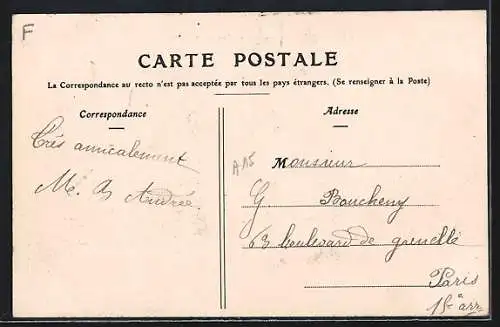 F
CARTE POSTALE
La Correspondance au recto n'est pas acceptée par tous les pays étrangers. (Se renseigner à la Poste)
Correspondance
Adresse
Très amicalement
Andrée
A15
Monsieur
G. Boucheny
63 boulevard de grenelle
Paris
15e arr